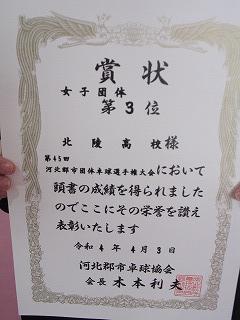 賞状
女子団体
第3位
北陵高校様
第45回
河北郡市団体卓球選手権大会において
頭書の成績を得られました
のでここにその栄誉を讃え
表彰いたします
令和4年4月3日
河北郡市卓球協会
会長 木本利夫